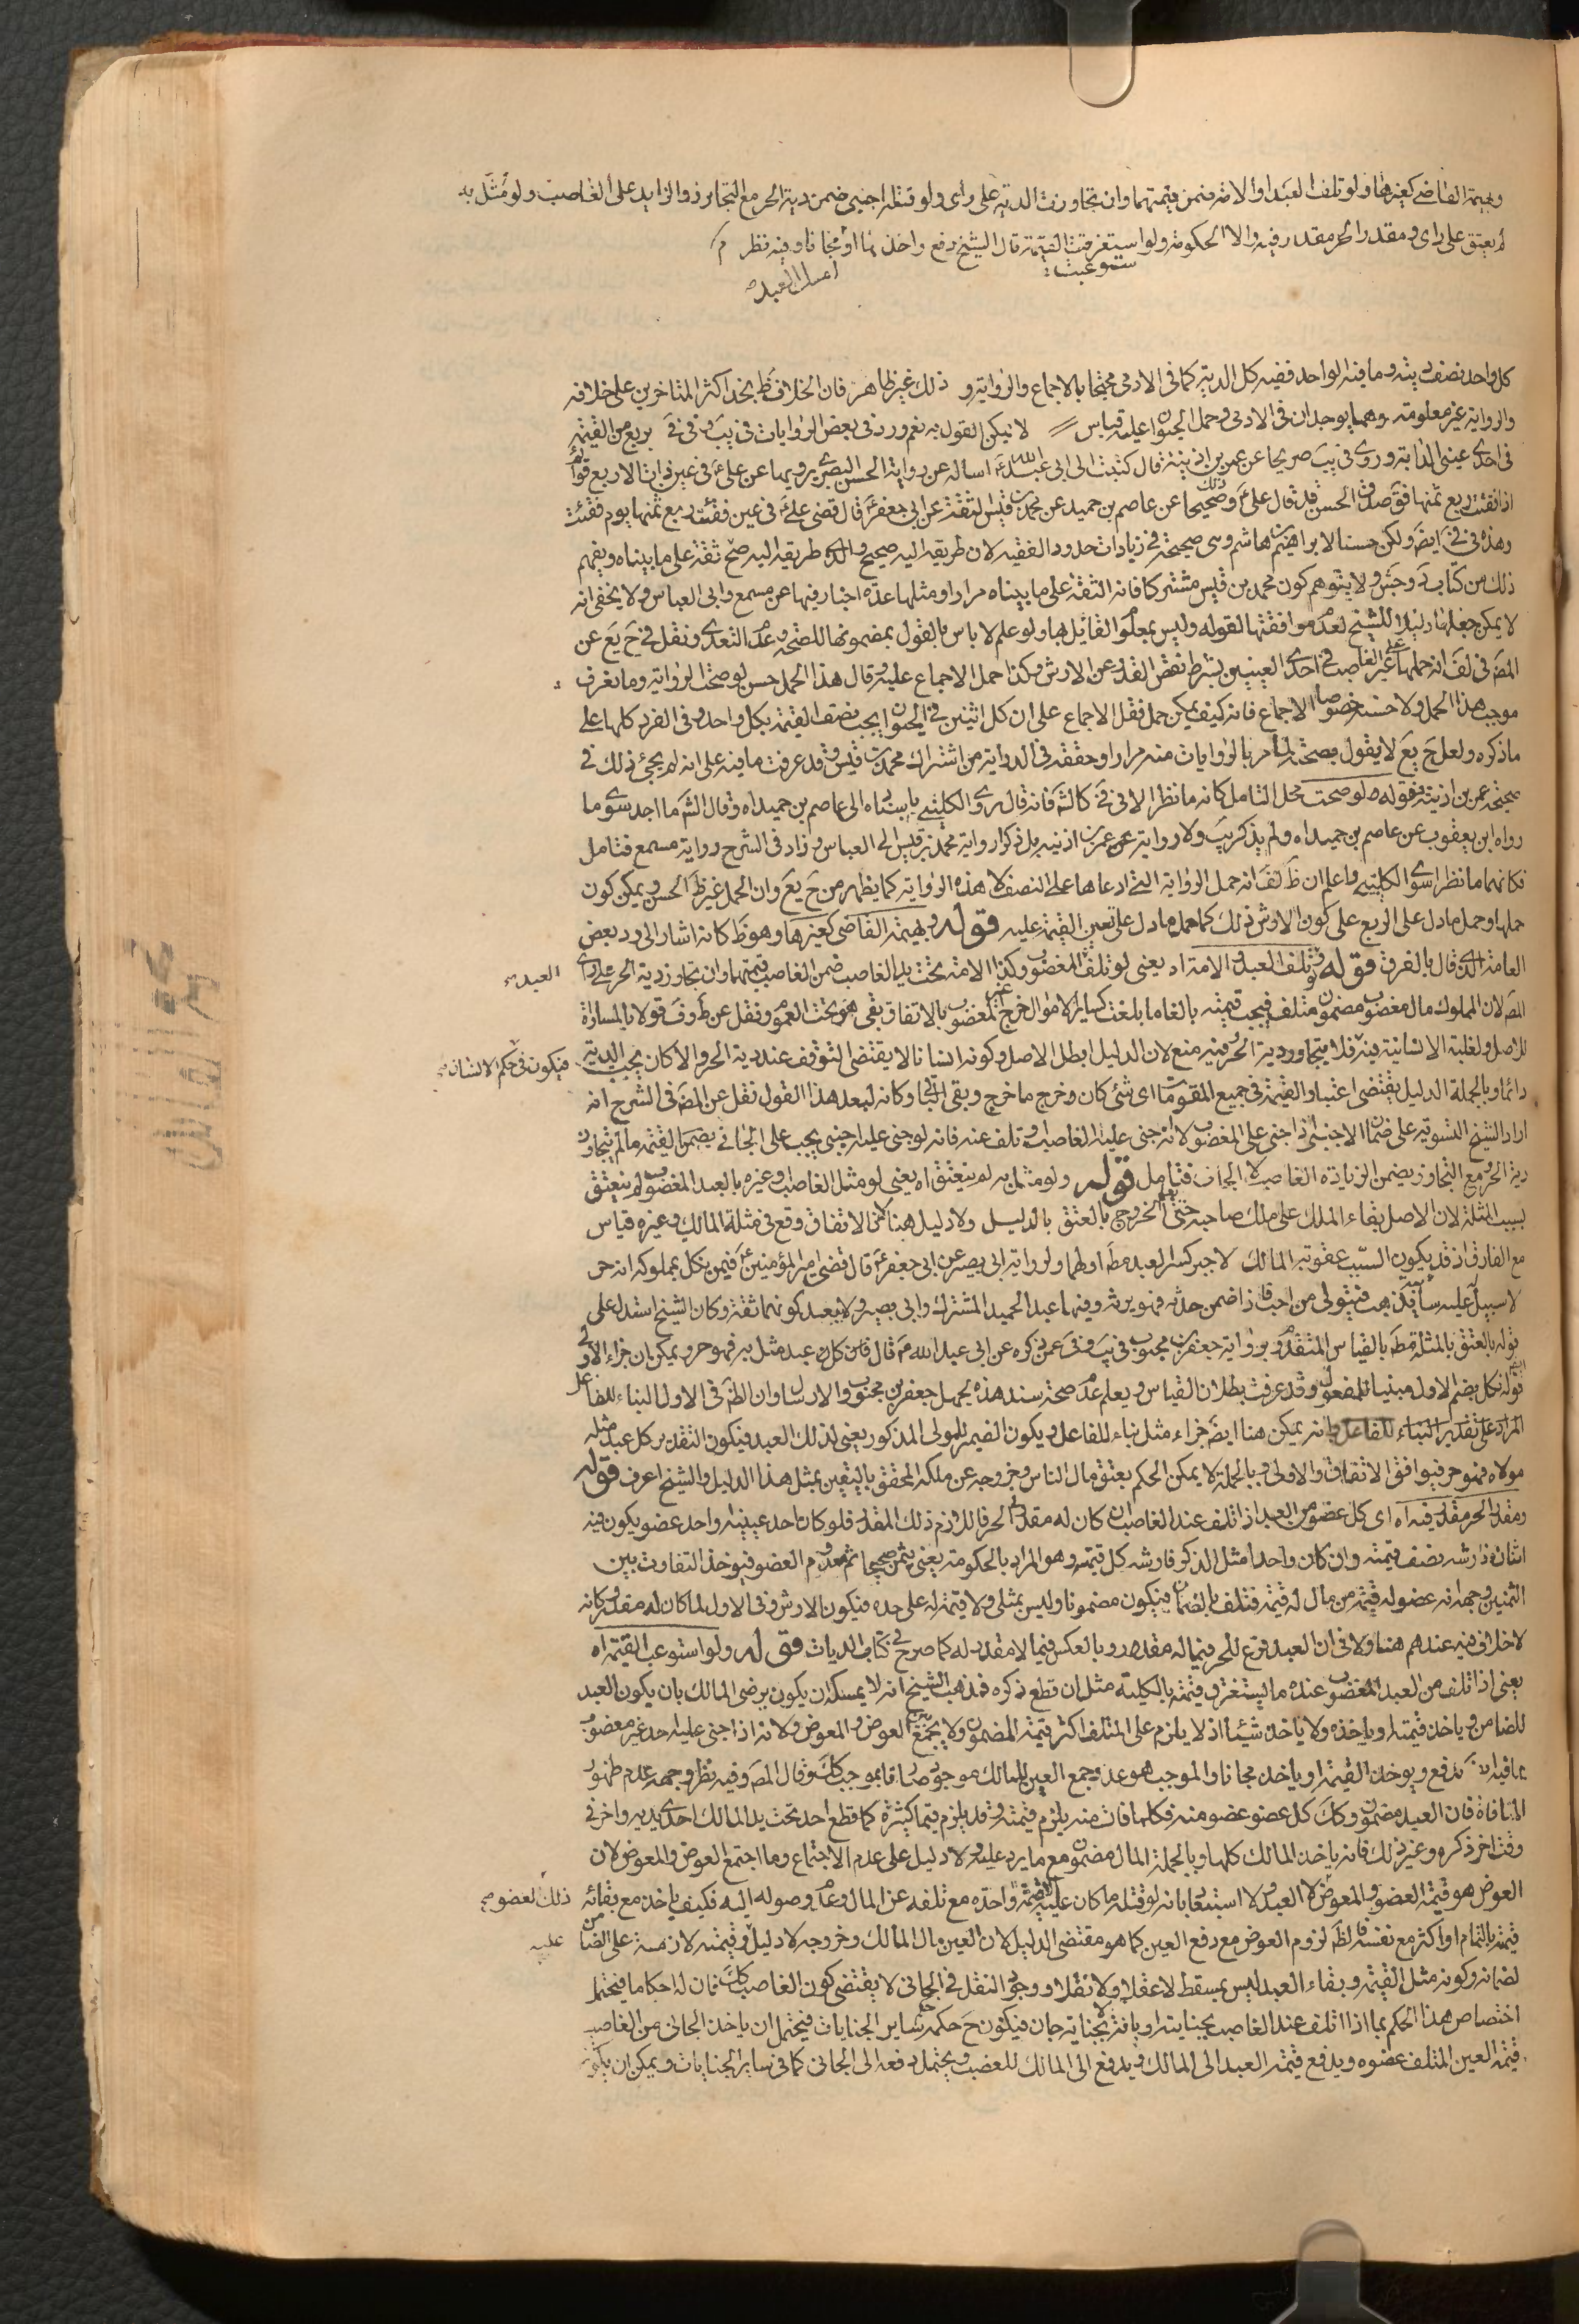 وبهيمة القاضي كغيرها ولو تلف العبد او الامة ضمن قيمتهما وان تجاوزت الدية على راى ولو قتله اجنبى ضمن دية الحر مع التجاوز والزايد على الغاصب ولو مثّل به
لم يعتق على راى ومقدر الحر مقدر فيه والا الحكومة ولو استغرقت القيمة قال الشيخ دفع واخذ او امسك مجانا وفيه نظر م
ستوعبت
امسك العبد
كل واحد نصف ديته وما فيه الواحد ففيه كل الدية كما فى الادمى محتجا بالاجماع والرواية و ذلك غير ظاهر فان الخلاف ظ بخد اكثر المتاخرين على خلافه
والرواية غير معلومة وهما يوجدان فى الادمى وحمل الحيوان عليه قياس لا يمكن القول به نعم ورد فى بعض الروايات فى يب وفى فى ربع من القيمة
فى احدى عينى الدابة وروى فى يب صريحا عن عمر بن اذينة قال كتبت الى ابى عبد الله ع اساله عن رواية الحسن البصرى يرويها عن على ع فى عين ذات الاربع قوائم
اذا فقئت ربع ثمنها فق صدق الحسن قد قال على ع ذلك وصحيحا عن عاصم بن حميد عن محمد بن قيس الثقة عن ابى جعفر ع قال قضى على ع فى عين فرس فقئت ربع ثمنها يوم فقئت
وهذه فى فى ايضَ ولكن حسنا لابراهيم بن هاشم وهى صحيحة فى زيادات حدود الفقيه لان طريقه اليه صحيح والد طريقه اليه صح ثقة على ما بيناه ويفهم
ذلك من كتاب د وجش ولا يتوهم كون محمد بن قيس مشتركا فانه الثقة على ما بيناه مرارا ومثلها عدة اخبار فيها عن مسمع وابى العباس ولا يخفى انه
لا يمكن جعلها دليلا للشيخ لعدم موافقتها لقوله وليس بمعلوم القائل بها ولو علم لا باس بالقول بمضمونها للصحة وعدم التعدى ونقل فى ح يع عن
المصَ فى لف انه حملها على غير الغاصب فى احدى العينين بشرط نقص القدر عن الارش وكذا حمل الاجماع عليه وقال هذا الحمل حسن لو صحت الرواية وما نعرف
موجب هذا الحمل ولا حسنه خصوصا الاجماع فانه كيف يمكن حمل نقل الاجماع على ان كل اثنين فى الحيوان يجب نصف القيمة بكل واحد وفى الفرد كلها على
ما ذكره ولعل ح يع لا يقول بصحة لما مر بالروايات منه مرارا وحققه فى الدراية من اشتراك محمد بن قيس وقد عرفت ما فيه على انه لم يجئ ذلك فى
صحيحة عمر بن اذينة وقوله ولو صحت محل التامل كانه ما نظر الا فى فى كالشَ فانه قال روى الكلينى باسناده الى عاصم بن حميد اه وقال الشَ ما اجد سوى ما
رواه ابن يعقوب عن عاصم بن حميد اه ولم يذكر يب ولا رواية عمر بن اذينه بل ذكر رواية محمد بن قيس الى العباس وزاد فى الشرح رواية مسمع فتامل
فكانهما ما نظرا سوى الكلينى واعلم ان ظ لف انه حمل الرواية التى ادعاها على النصف لا هذه الرواية كما يظهر من ح يع وان الحمل غير ظ الحسن ويمكن كون
حملها وحمل ما دل على الربع على كون الارش ذلك كما حمل ما دل على تعين القيمة عليه قوله وبهيمة القاضى كغيرها وهو ظ كانه اشار الى رد بعض
العامة الذى قال بالفرق قوله ولو تلف العبد والامة اه يعنى لو تلف المغصوب وكذا الامة تحت يد الغاصب ضمن الغاصب قيمتهما وان تجاوز دية الحر على راى
العبد
المصَ لان المملوك مال مغصوب مضمون متلف فيجب قيمته بالغا ما بلغت كساير الاموال خرج غير المغصوب بالاتفاق بقى هو تحت العموم ونقل عن ط وف قولا بالمساواة
للاصل ولغلبة الانسانية فيه فلا يتجاوز دية الحر وفيه منع لان الدليل ابطل الاصل وكونه انسانا لا يقتضى التوقف عند دية الحر والا كان يجب الدية
فيكون فى حكم الانسان
دائما وبالجملة الدليل يقتضى اعتبار القيمة فى جميع المقومات اى شئ كان وخرج ما خرج وبقى الباقى وكانه لبعد هذا القول نقل عن المصَ فى الشرح انه
اراد الشيخ التسوية على ضمان الاجنبى اذا جنى على المغصوب لا انه جنى عليه الغاصب او تلف عنده فانه لو جنى عليه اجنبى يجب على الجانى يضمن القيمة ما لم يتجاوز
دية الحر ومع التجاوز يضمن الزيادة الغاصب لا الجانى فتامل قوله ولو مثل به لم ينعتق اه يعنى لو مثل الغاصب او غيره بالعبد المغصوب لم ينعتق
بسبب المثلة لان الاصل بقاء الملك على ملك صاحبه حتى يعلم الخروج بالعتق بالدليل ولا دليل هنا لان الاتفاق وقع فى مثلة المالك وغيره قياس
مع الفارق اذ قد يكون السبب عقوبة المالك لا جبر كسر العبد مطَ او لهما ولرواية ابى بصير عن ابى جعفر ع قال قضى امير المؤمنين ع فيمن نكل بمملوكه انه حر
لا سبيل عليه سايبة يذهب فيتولى من احب فاذا ضمن حدثه فهو يرثه وفيها عبد الحميد المشترك وابى بصير ولا يبعد كونهما ثقة وكان الشيخ استدل على
قوله بالعتق بالمثلة مطَ بالقياس المتقدم وبرواية جعفر بن محبوب فى يب وفى فى عمن ذكره عن ابى عبد الله ع قال كل عبد مثل به فهو حر ويمكن ان جزاء الاول
قوله نكل بضم الاول مبنيا للمفعول وقد عرفت بطلان القياس ويعلم عدم صحة سند هذه بجهل جعفر بن محبوب والارسال وان الظَ فى الاول البناء للفاعل
المراد على تقدير البناء للفاعل وانه يمكن هنا ايضَ جزاء مثل بناء للفاعل ويكون الضمير للمولى المذكور يعنى لذلك العبد فيكون التقدير كل عبد مثله
مولاه فهو حر فيوافق الاتفاق والاولى وبالجملة لا يمكن الحكم بعتق مال الناس وخروجه عن ملكه المحقق باليقين بمثل هذا الدليل والشيخ اعرف قوله
ومقدر الحر مقدر فيه اه اى كل عضو من العبد اذا تلف عند الغاصب ان كان له مقدر فى الحر فاللازم ذلك المقدر فلو كان احد عينيه او احد عضو يكون فيه
اثنان فارشه نصف قيمته وان كان واحدا مثل الذكر فارشه كل قيمته وهو المراد بالحكومة يعنى يثمن صحيحا ثم معدوم العضو فيوخذ التفاوت بين
الثمنين وجهه انه عضو له قيمة من مال له قيمة فتلف بالضمان فيكون مضمونا وليس بمثلى ولا قيمة له على حده فيكون الارش وفى الاول لما كان له مقدر وكانه
لا خلاف فيه عندهم هنا ولا فى ان العبد فرع للحر فيما له مقدر وبالعكس فيما لا مقدر له كما صرح فى كتاب الديات قوله ولو استوعب القيمة اه
يعنى اذا تلف من العبد المغصوب عنده ما يستغرق قيمته بالكلية مثل ان قطع ذكره فمذهب الشيخ انه لا يمسكه ان يكون يرضى المالك بان يكون العبد
للضامن وياخذ قيمته او ياخذه ولا ياخذ شيئا اذ لا يلزم على المتلف اكثر قيمة المضمون ولا يجمع العوض والمعوض ولانه اذا جنى عليه احد غير مغصوب
يدفع ويوخذ القيمة او ياخذ مجانا والموجب هو عدم جمع العين للمالك موجود صار قايموجب كك وقال المصَ وفيه نظر وجهه عدم ظهور
المنافاة فان العبد مضمون وكك كل عضو عضو منه فكلما فات منه يلزم قيمته وقد يلزم قيما كثيرة كما قطع احد تحت يد المالك احدى يديه واخر فى
وقت اخر ذكره وغير ذلك فانه ياخذ المالك كلها وبالجملة المال مضمون مع ما يرد عليه ولا دليل على عدم الاجتماع وما اجتمع العوض والمعوض لان
العوض هو قيمة العضو والمعوض لا العبد ولا استبعد بانه لو قتله ما كان عليه الا قيمة واحدة مع تلفه عن المال وعدم وصوله اليه فكيف ياخذ مع بقائه
ذلك العضو
قيمته بالتمام او اكثر مع نفسه فالظَ لزوم العوض مع دفع العين كما هو مقتضى الدليل لان العين مال المالك وخروجه لا دليل وقيمته لازمة على الضامن
عليه
لضمانه وكونه مثل القيمة وبقاء العبد ليس بمسقط لا عقلا ولا نقلا ووجود النقل فى الجانى لا يقتضى كون الغاصب كك فان له احكاما فيحتمل
اختصاص هذا الحكم بما اذا تلف عند الغاصب بجنايته او بافة لا بجناية جان فيكون ح حكمه حكم ساير الجنايات فيحتمل ان ياخذ الجانى من الغاصب
قيمة العين المتلف عضوه ويدفع قيمة العبد الى المالك ويدفع الى المالك للغصب ويحتمل دفعه الى الجانى كما فى ساير الجنايات ويمكن ان يكون